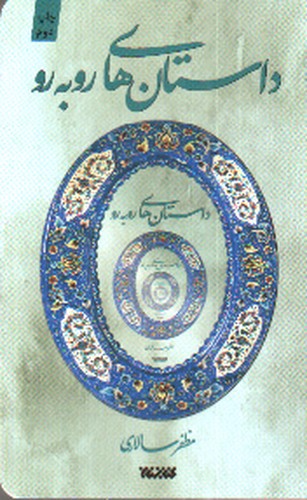 چاپ دوم
داستان‌های روبه‌رو
داستان‌های روبه‌رو
مظفر سالاری